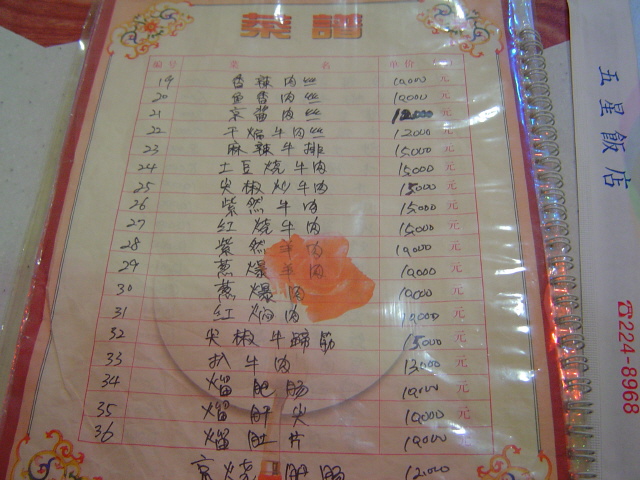 菜譜
編号 菜 名 单价 元
19 香辣肉丝 10,000 元
20 鱼香肉丝 10,000 元
21 京酱肉丝 12,000 元
22 干煸牛肉丝 12,000 元
23 麻辣牛排 15,000 元
24 土豆烧牛肉 15,000 元
25 尖椒炒牛肉 15,000 元
26 紫然牛肉 15,000 元
27 红烧牛肉 15,000 元
28 紫然羊肉 10,000 元
29 葱爆羊肉 10,000 元
30 葱爆肉 10,000 元
31 红焖肉 10,000 元
32 尖椒牛蹄筋 15,000 元
33 扒牛肉 13,000 元
34 熘肥肠 10,000 元
35 熘肝尖 10,000 元
36 熘肚片 10,000 元
京烧肥肠 12,000
五星飯店
☎224-8968